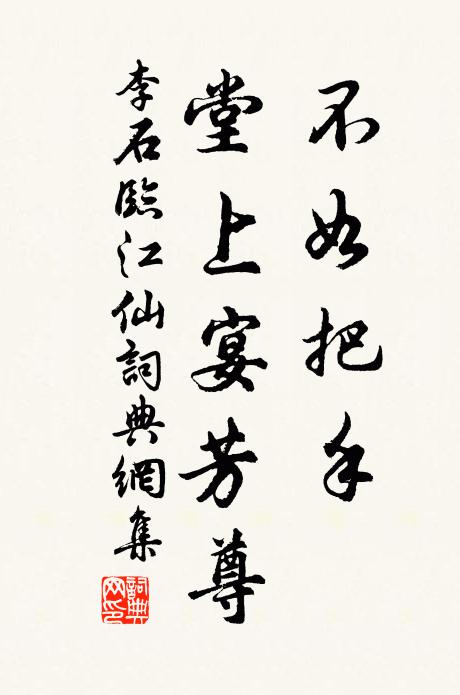 不如把手
堂上宴芳尊
李石臨江仙詞典網集
詞典網印